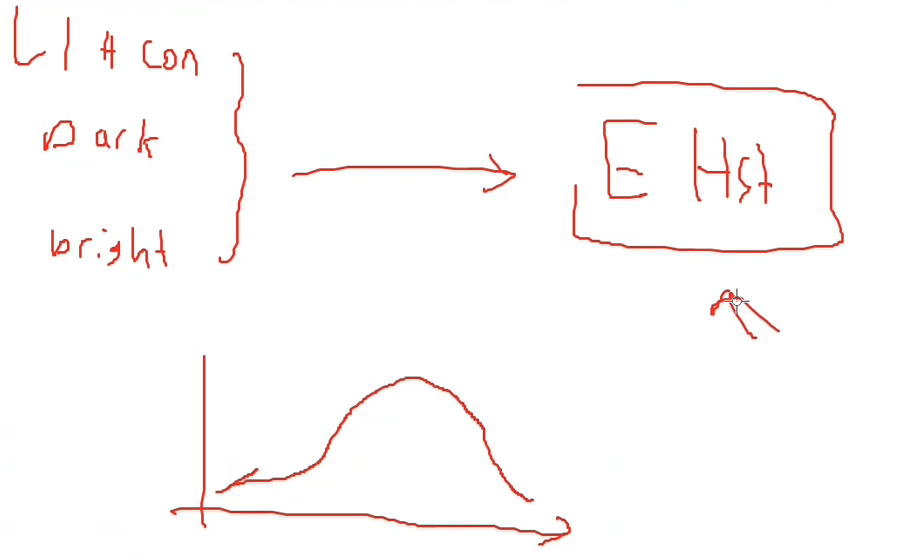 L I H con
Dark
bright
E Hst